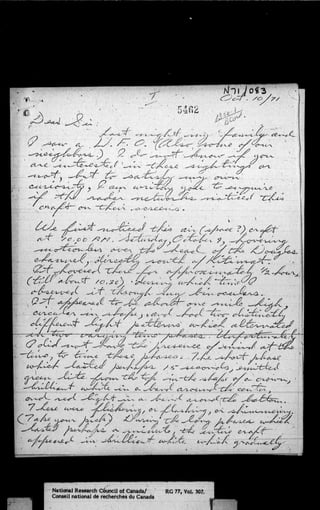 N71/083
Oct. 10/71
I
5462
Dear Sir:
Last night my family and
I saw a U.F.O. (Also, some of our
neighbours). I do not know if you
are interested in these sightings or
not, but to satisfy my own
curiosity, I am writing you to enquire
if the radar networks noticed this
craft on their screens.
We first noticed this air (space?) craft
at 10.00 P.M. Saturday, October 9, hovering
motionless over the head of the Douglas
channel, directly south of Kitimat.
It hovered there for approximately ½ hour
(till about 10.30) during which time I
observed it through my binoculars.
It appeared to be about one mile high,
circular in shape, and had two distinctly
different light patterns, which alternated
in two varying time phases. Unfortunately
I did not have the presence of mind at the
time, to time these phases. The short phase
which lasted perhaps 15 seconds, emitted
green lite from the top in the shape of a crown,
brilliant white in a band around the centre,
and red light in a band around the bottom.
There were flickering, or flashing, or shimmering
(Take your pick) During the long phase which
lasted perhaps a minute, the entire craft
appeared in brilliant white which gradually
National Research Council of Canada/
Conseil national de recherches du Canada
RG 77, Vol. 307.